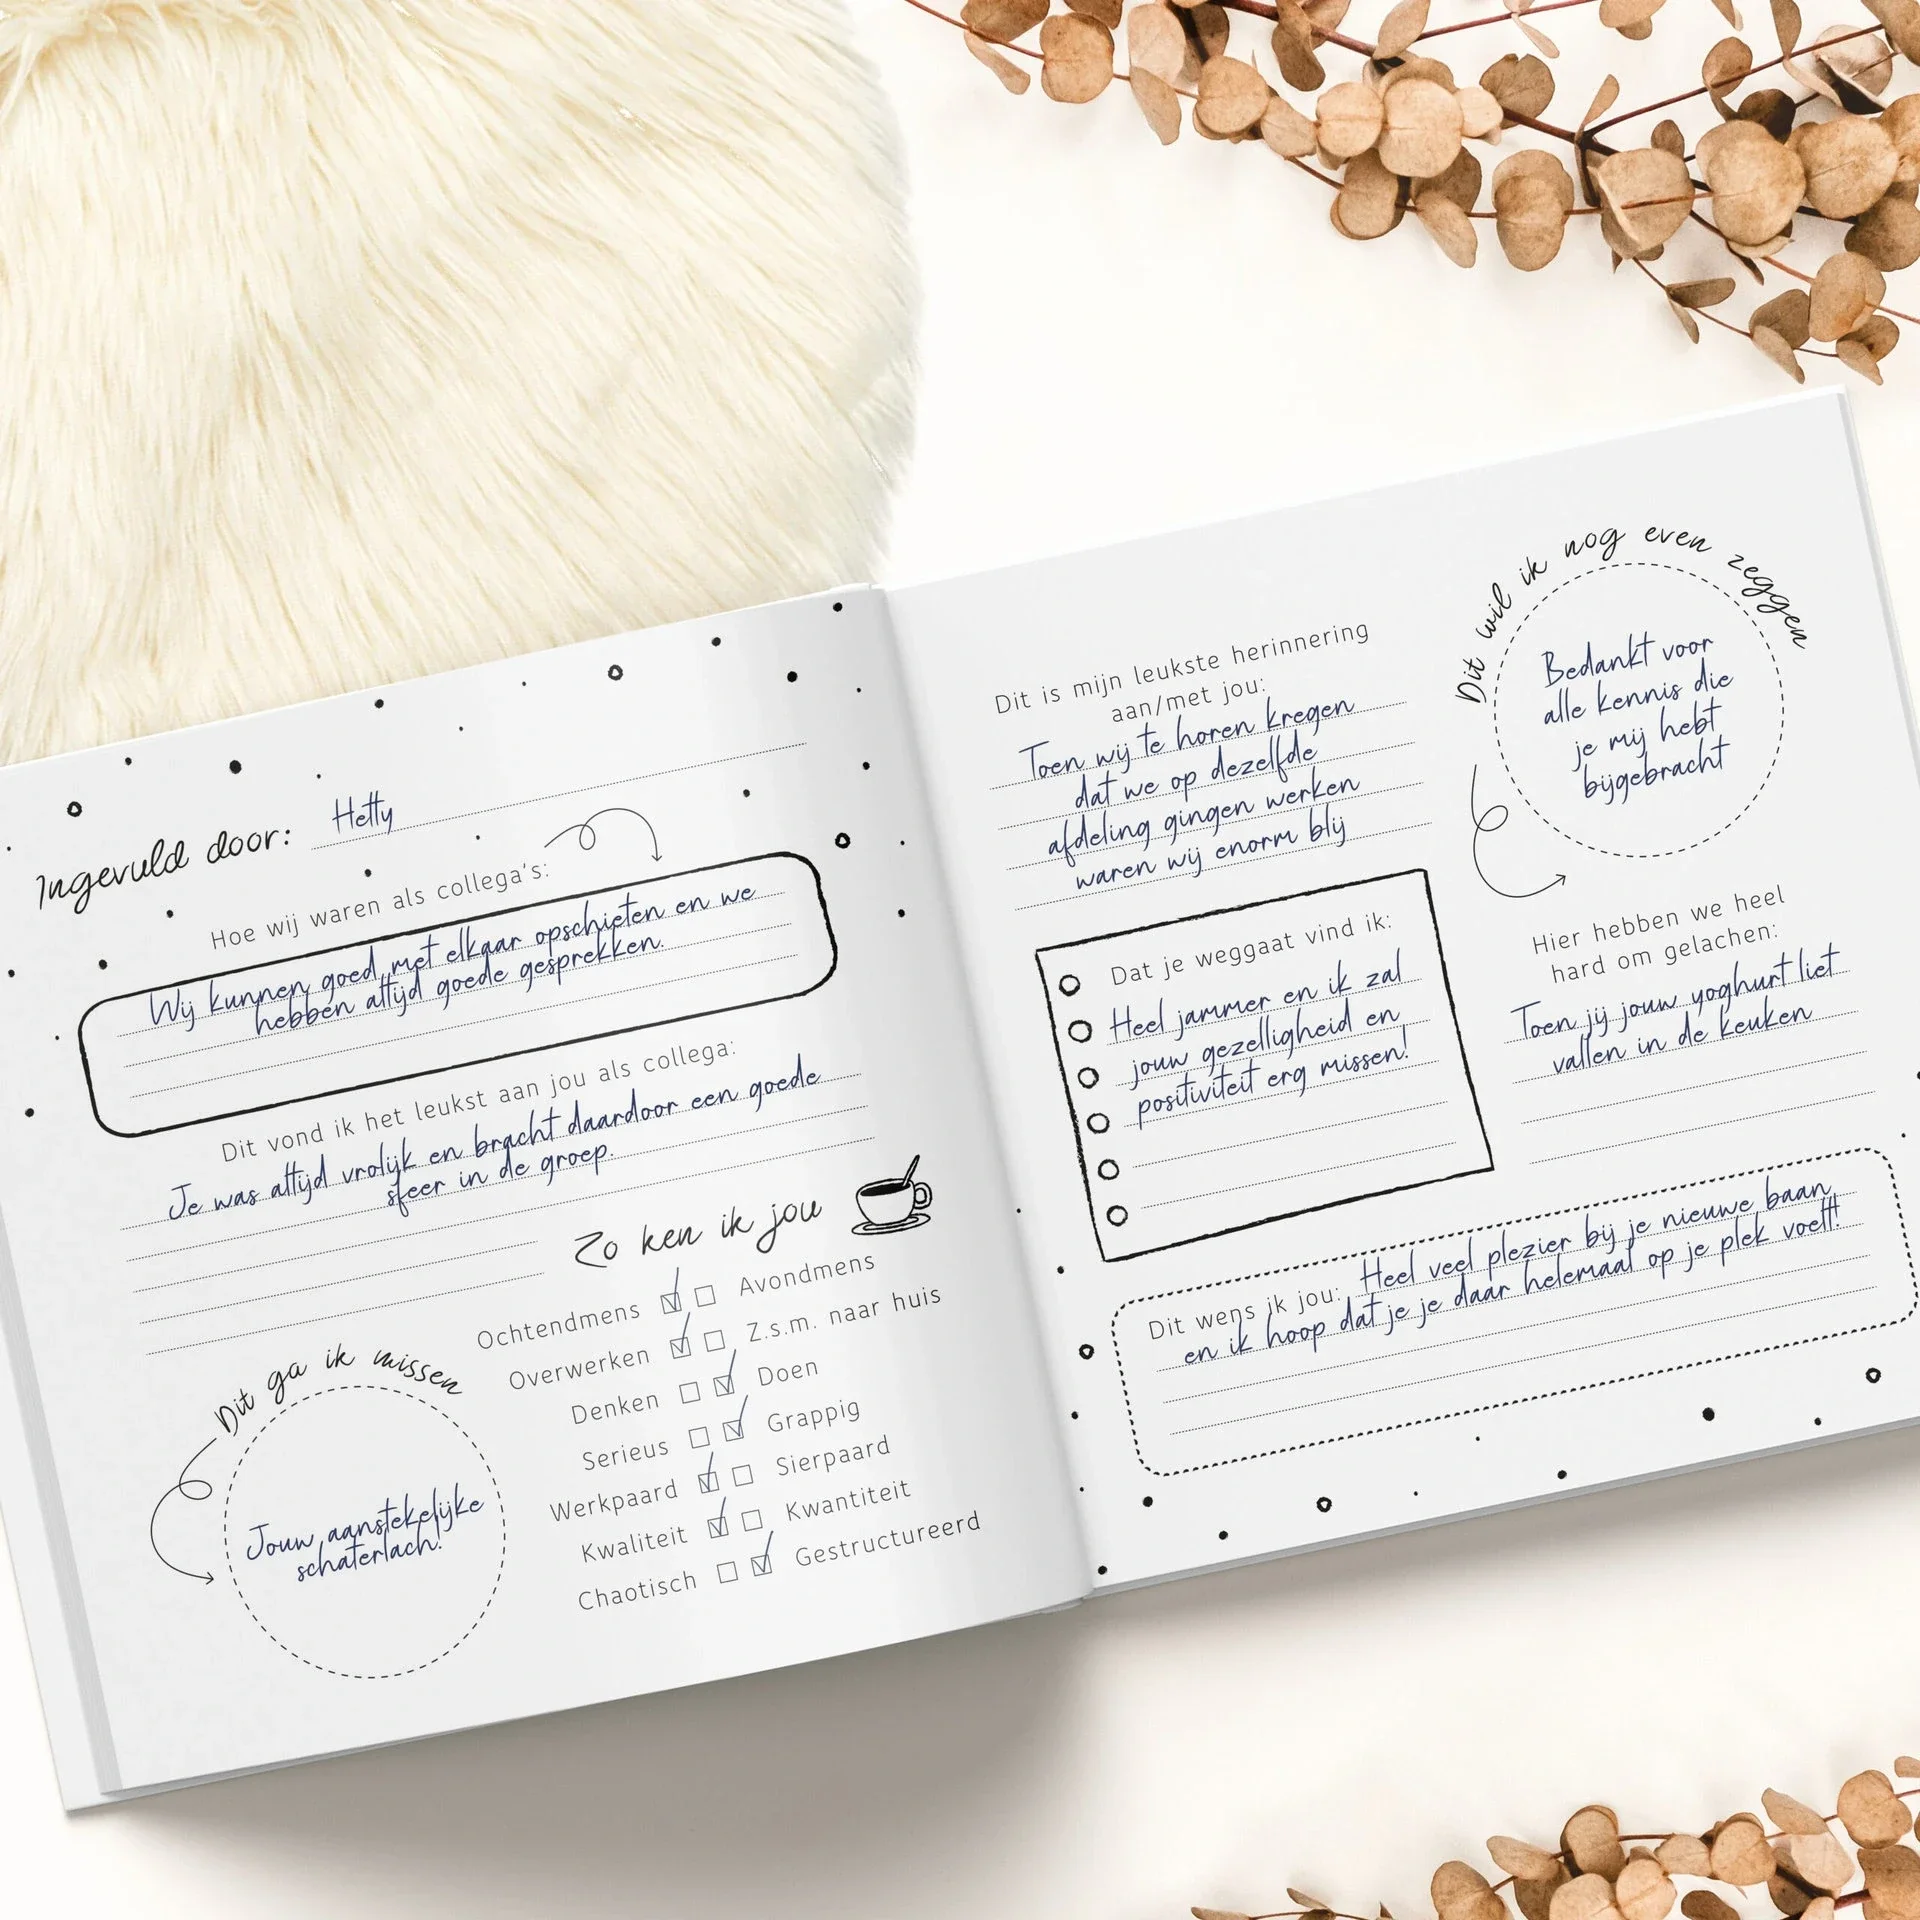 Ingevuld door: Hetty
Hoe wij waren als collega's:
Wij kunnen goed met elkaar opschieten en we
hebben altijd goede gesprekken.
Dit vond ik het leukst aan jou als collega:
Je was altijd vrolijk en bracht daardoor een goede
sfeer in de groep.
Zo ken ik jou
Ochtendmens Avondmens
Overwerken Z.s.m. naar huis
Denken Doen
Serieus Grappig
Werkpaard Sierpaard
Kwaliteit Kwantiteit
Chaotisch Gestructureerd
Dit ga ik missen
Jouw aanstekelijke
schaterlach!
Dit is mijn leukste herinnering
aan/met jou:
Toen wij te horen kregen
dat we op dezelfde
afdeling gingen werken
waren wij enorm blij
Dit wil ik nog even zeggen
Bedankt voor
alle kennis die
je mij hebt
bijgebracht
Dat je weggaat vind ik:
Heel jammer en ik zal
jouw gezelligheid en
positiviteit erg missen!
Hier hebben we heel
hard om gelachen:
Toen jij jouw yoghurt liet
vallen in de keuken
Dit wens ik jou: Heel veel plezier bij je nieuwe baan
en ik hoop dat je je daar helemaal op je plek voelt!